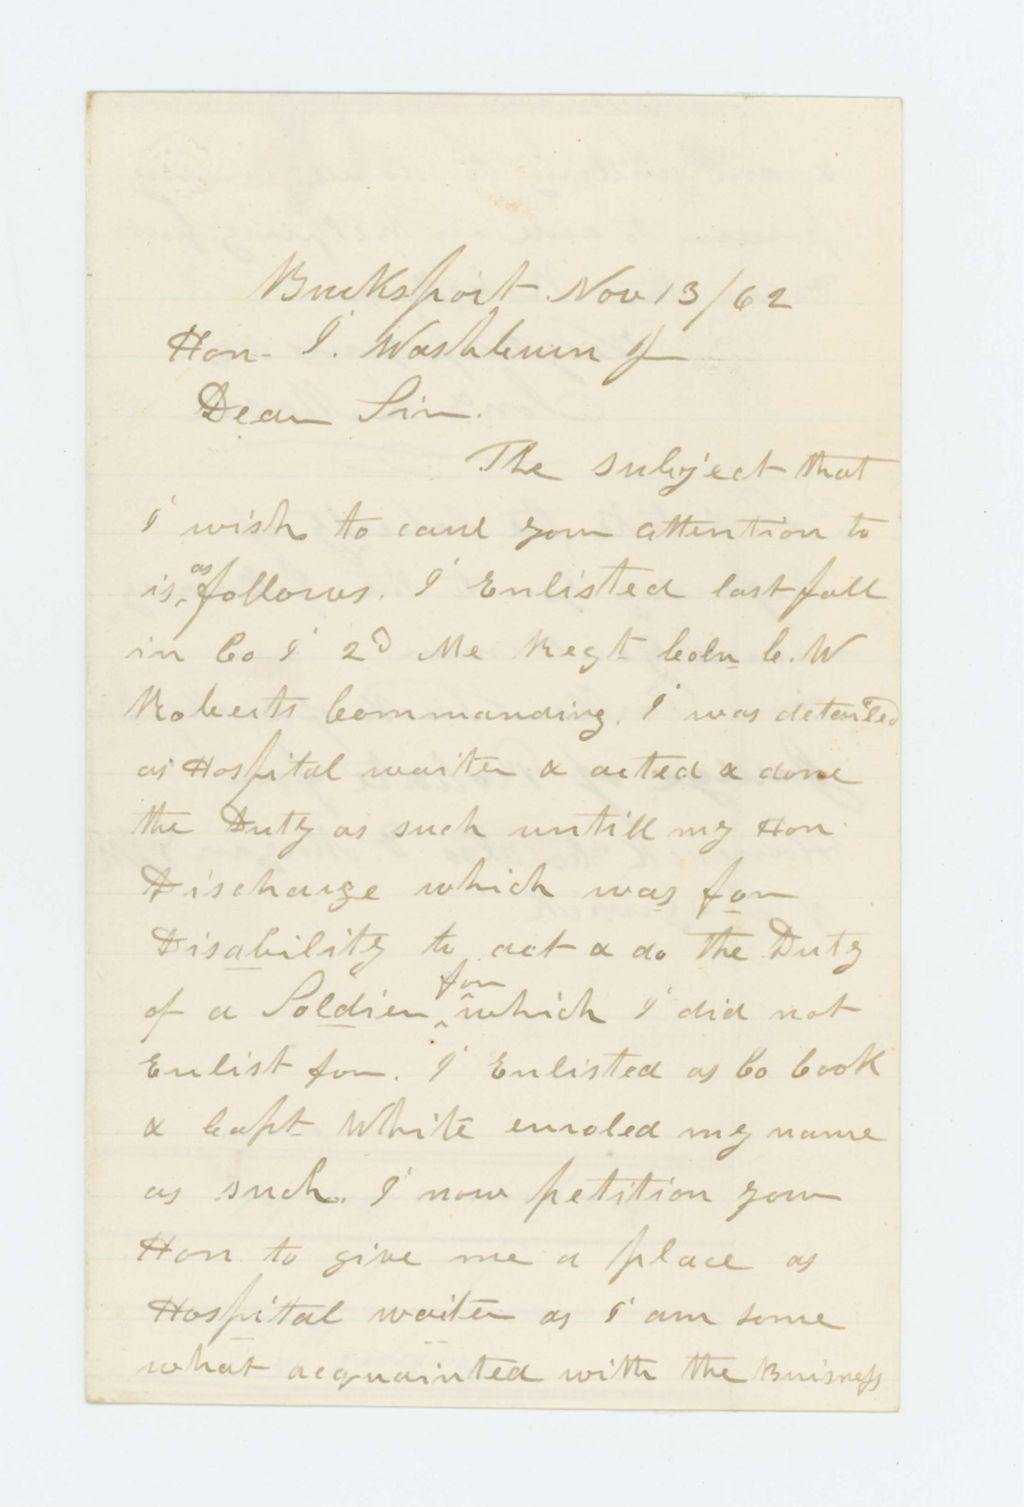 Bucksport Nov 13/62
Hon. I. Washburn Jr
Dear Sir.
The subject that
I wish to caul your attention to
is as follows. I Enlisted last fall
in Co I 2d Me Regt Coln C. W
Roberts Commanding. I was detailed
as Hospital waiter & acted & done
the Duty as such untill my Hon
Discharge which was for
Disability to act & do the Duty
of a Soldier for which I did not
Enlist for. I Enlisted as Co Cook
& Capt White enroled my name
as such. I now petition your
Hon to give me a place as
Hospital waiter as I am some
what acquainted with the Buisness